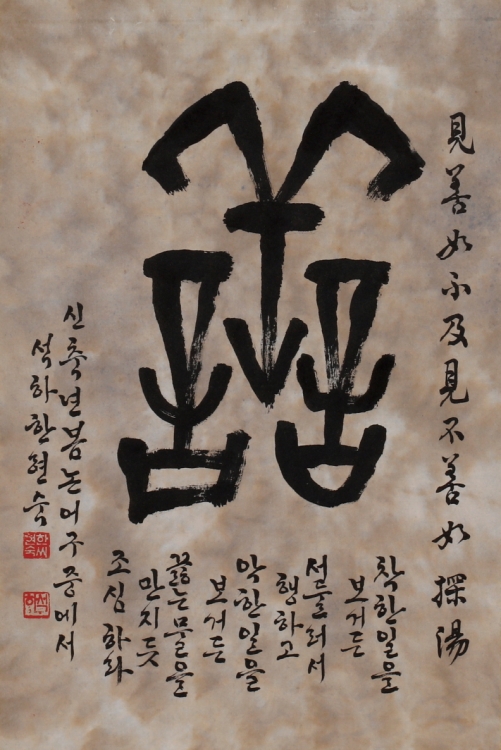 見善如不及見不善如探湯
譱
착한일을
보거든
서둘러서
행하고
악한일을
보거든
끓는물을
만지듯
조심하라
신축년봄논어구중에서
석하한현숙